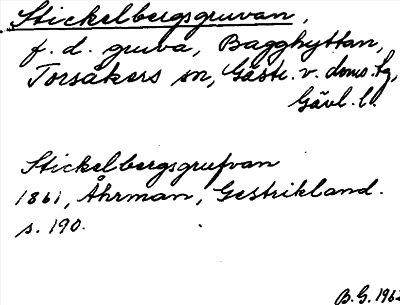 Stickelbergsgruvan,
f. d. gruva, Bagghyttan,
Torsåkers sn, Gästr. v. doms. tg,
Gävl. l.
Stickelbergsgrufvan
1861, Åhrman, Gestrikland.
s. 190.
B. G. 1962